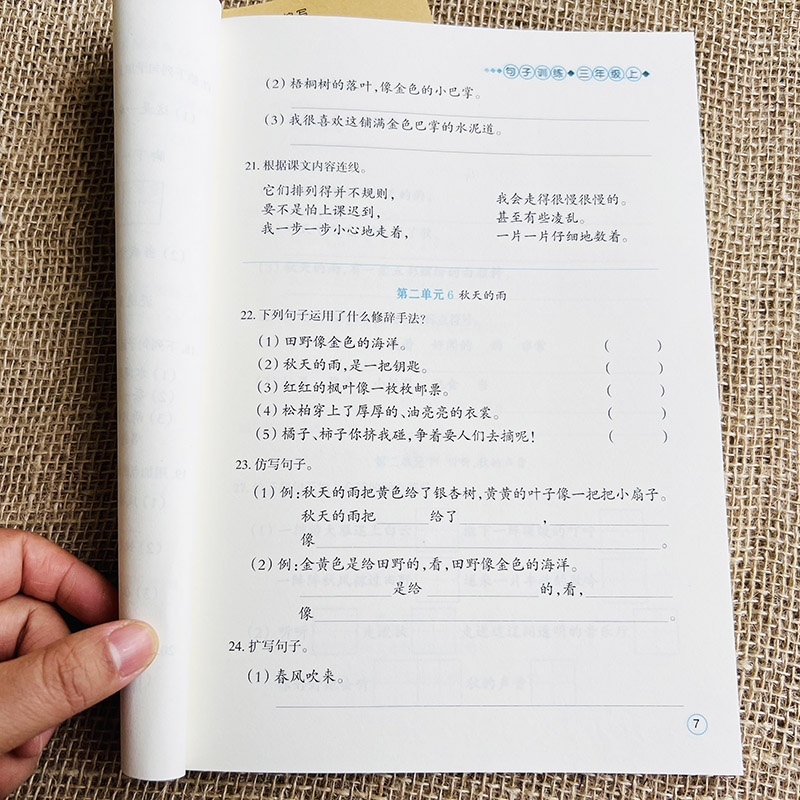 句子训练 三年级上
(2) 梧桐树的落叶,像金色的小巴掌。
(3) 我很喜欢这铺满金色巴掌的水泥道。
21. 根据课文内容连线。
它们排列得并不规则, 我会走得很慢很慢的。
要不是怕上课迟到, 甚至有些凌乱。
我一步一步小心地走着, 一片一片仔细地数着。
第二单元 6 秋天的雨
22. 下列句子运用了什么修辞手法?
(1) 田野像金色的海洋。 ( )
(2) 秋天的雨,是一把钥匙。 ( )
(3) 红红的枫叶像一枚枚邮票。 ( )
(4) 松柏穿上了厚厚的、油亮亮的衣裳。 ( )
(5) 橘子、柿子你挤我碰,争着要人们去摘呢! ( )
23. 仿写句子。
(1) 例:秋天的雨把黄色给了银杏树,黄黄的叶子像一把把小扇子。
秋天的雨把 给了 ,
像 。
(2) 例:金黄色是给田野的,看,田野像金色的海洋。
是给 的,看,
像 。
24. 扩写句子。
(1) 春风吹来。
7